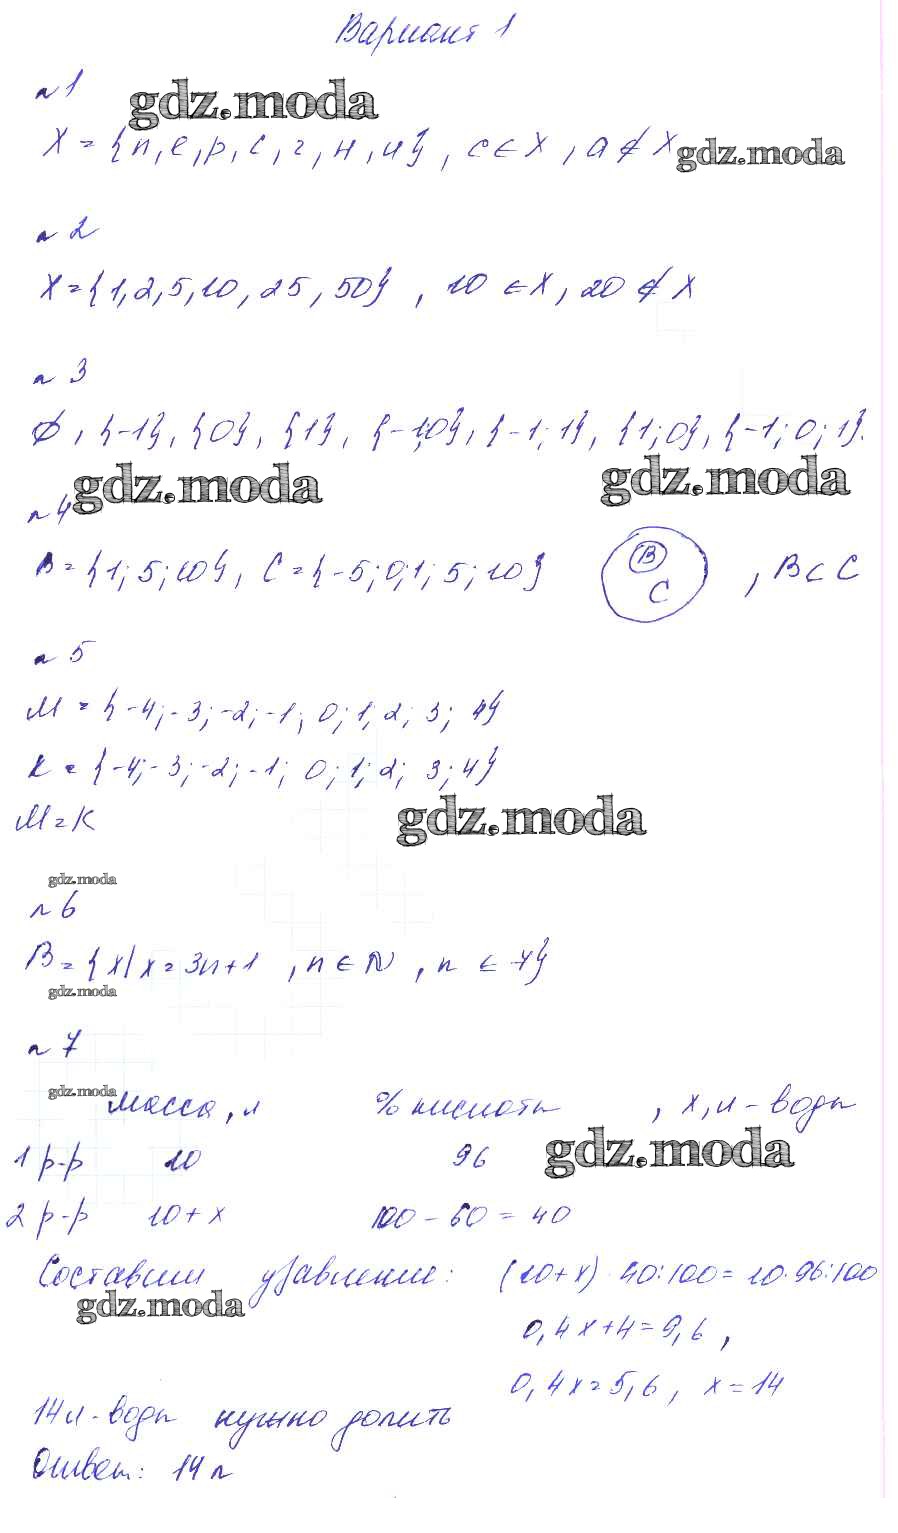 Вариант 1
n 1
gdz.moda
X = {п, е, р, с, ч, н, и}, с ∈ X, а ∉ X
gdz.moda
n 2
X = {1, 2, 5, 10, 25, 50}, 10 ∈ X, 20 ∉ X
n 3
∅, {-1}, {0}, {1}, {-1;0}, {-1; 1}, {1; 0}, {-1; 0; 1}.
gdz.moda gdz.moda
n 4
B = {1; 5; 10}, C = {-5; 0; 1; 5; 10} B C , B ⊂ C
n 5
M = {-4; -3; -2; -1; 0; 1; 2; 3; 4}
K = {-4; -3; -2; -1; 0; 1; 2; 3; 4}
M = K
gdz.moda
gdz.moda
n 6
B = {x | x = 3n + 1, n ∈ N, n ∈ 7}
gdz.moda
n 7
gdz.moda
Масса, л % кислоты , x, л - воды
gdz.moda
1 р-р 10 96
2 р-р 10 + x 100 - 60 = 40
Составим уравнение: (10 + x) · 40 : 100 = 10 · 96 : 100
gdz.moda
0,4x + 4 = 9,6,
0,4x = 5,6, x = 14
14 л - воды нужно долить
Ответ: 14 л